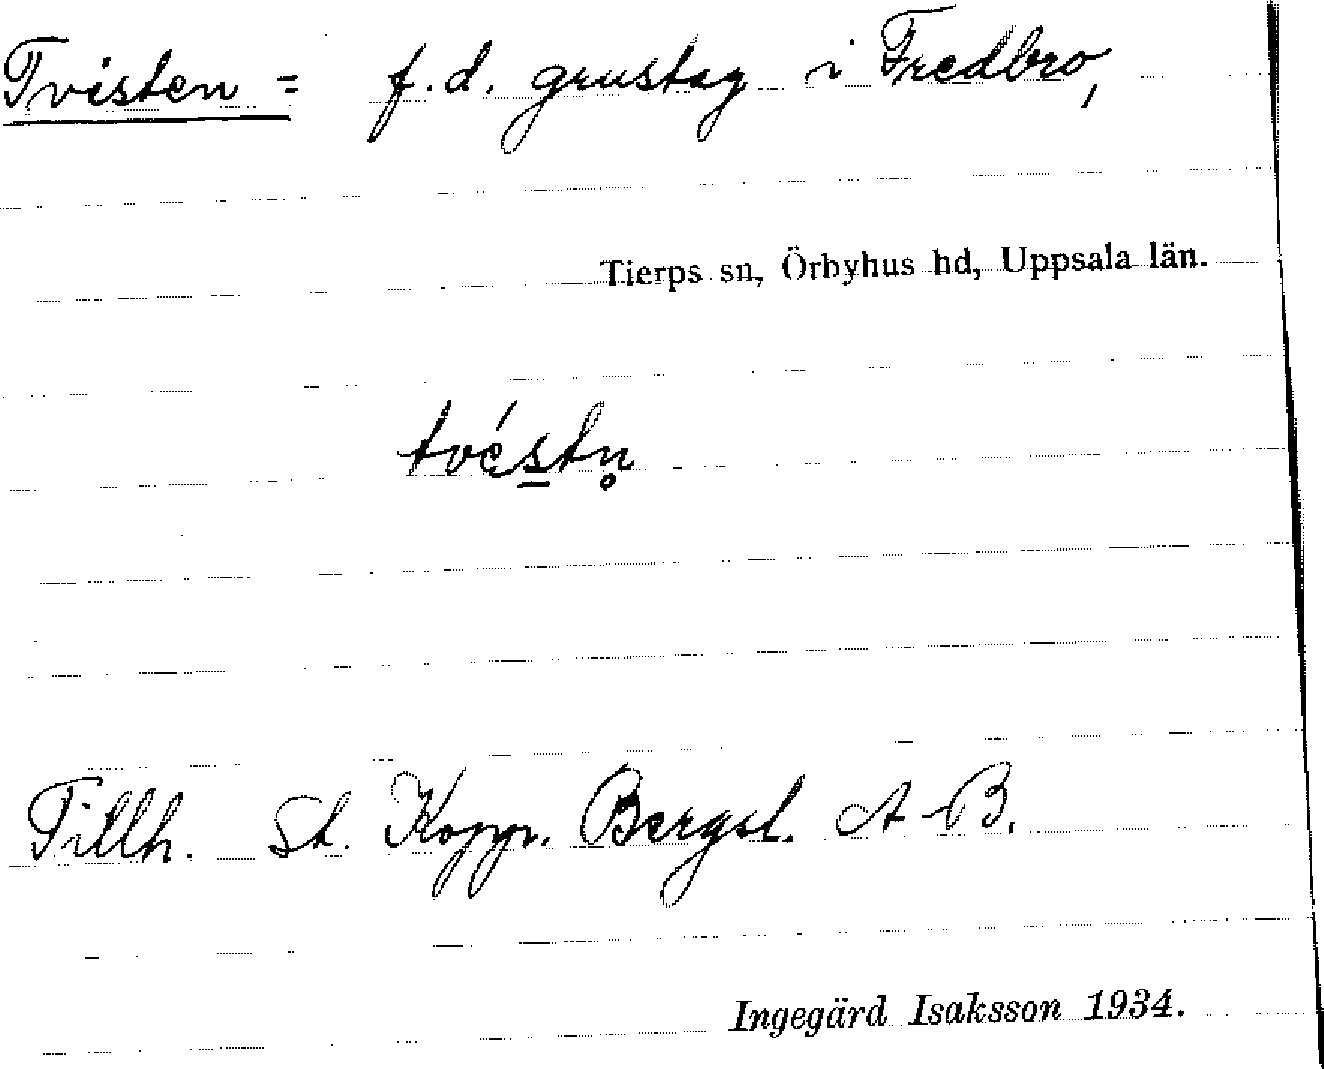 Tvisten = f.d. grustag i Fredbro,
Tierps sn, Örbyhus hd, Uppsala län.
tvés̲tn̥
Tillh. St. Kopp. Bergsl. A-B.
Ingegärd Isaksson 1934.